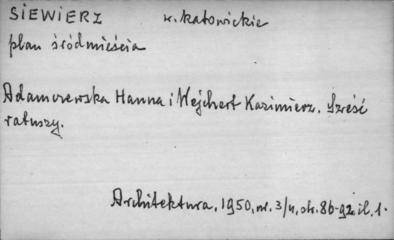 SIEWIERZ w. katowickie
plan śródmieścia
Adamczewska Hanna i Wejchert Kazimierz. Sześć
ratuszy.
Architektura, 1950, nr. 3/4, str. 86-92 il. 1.